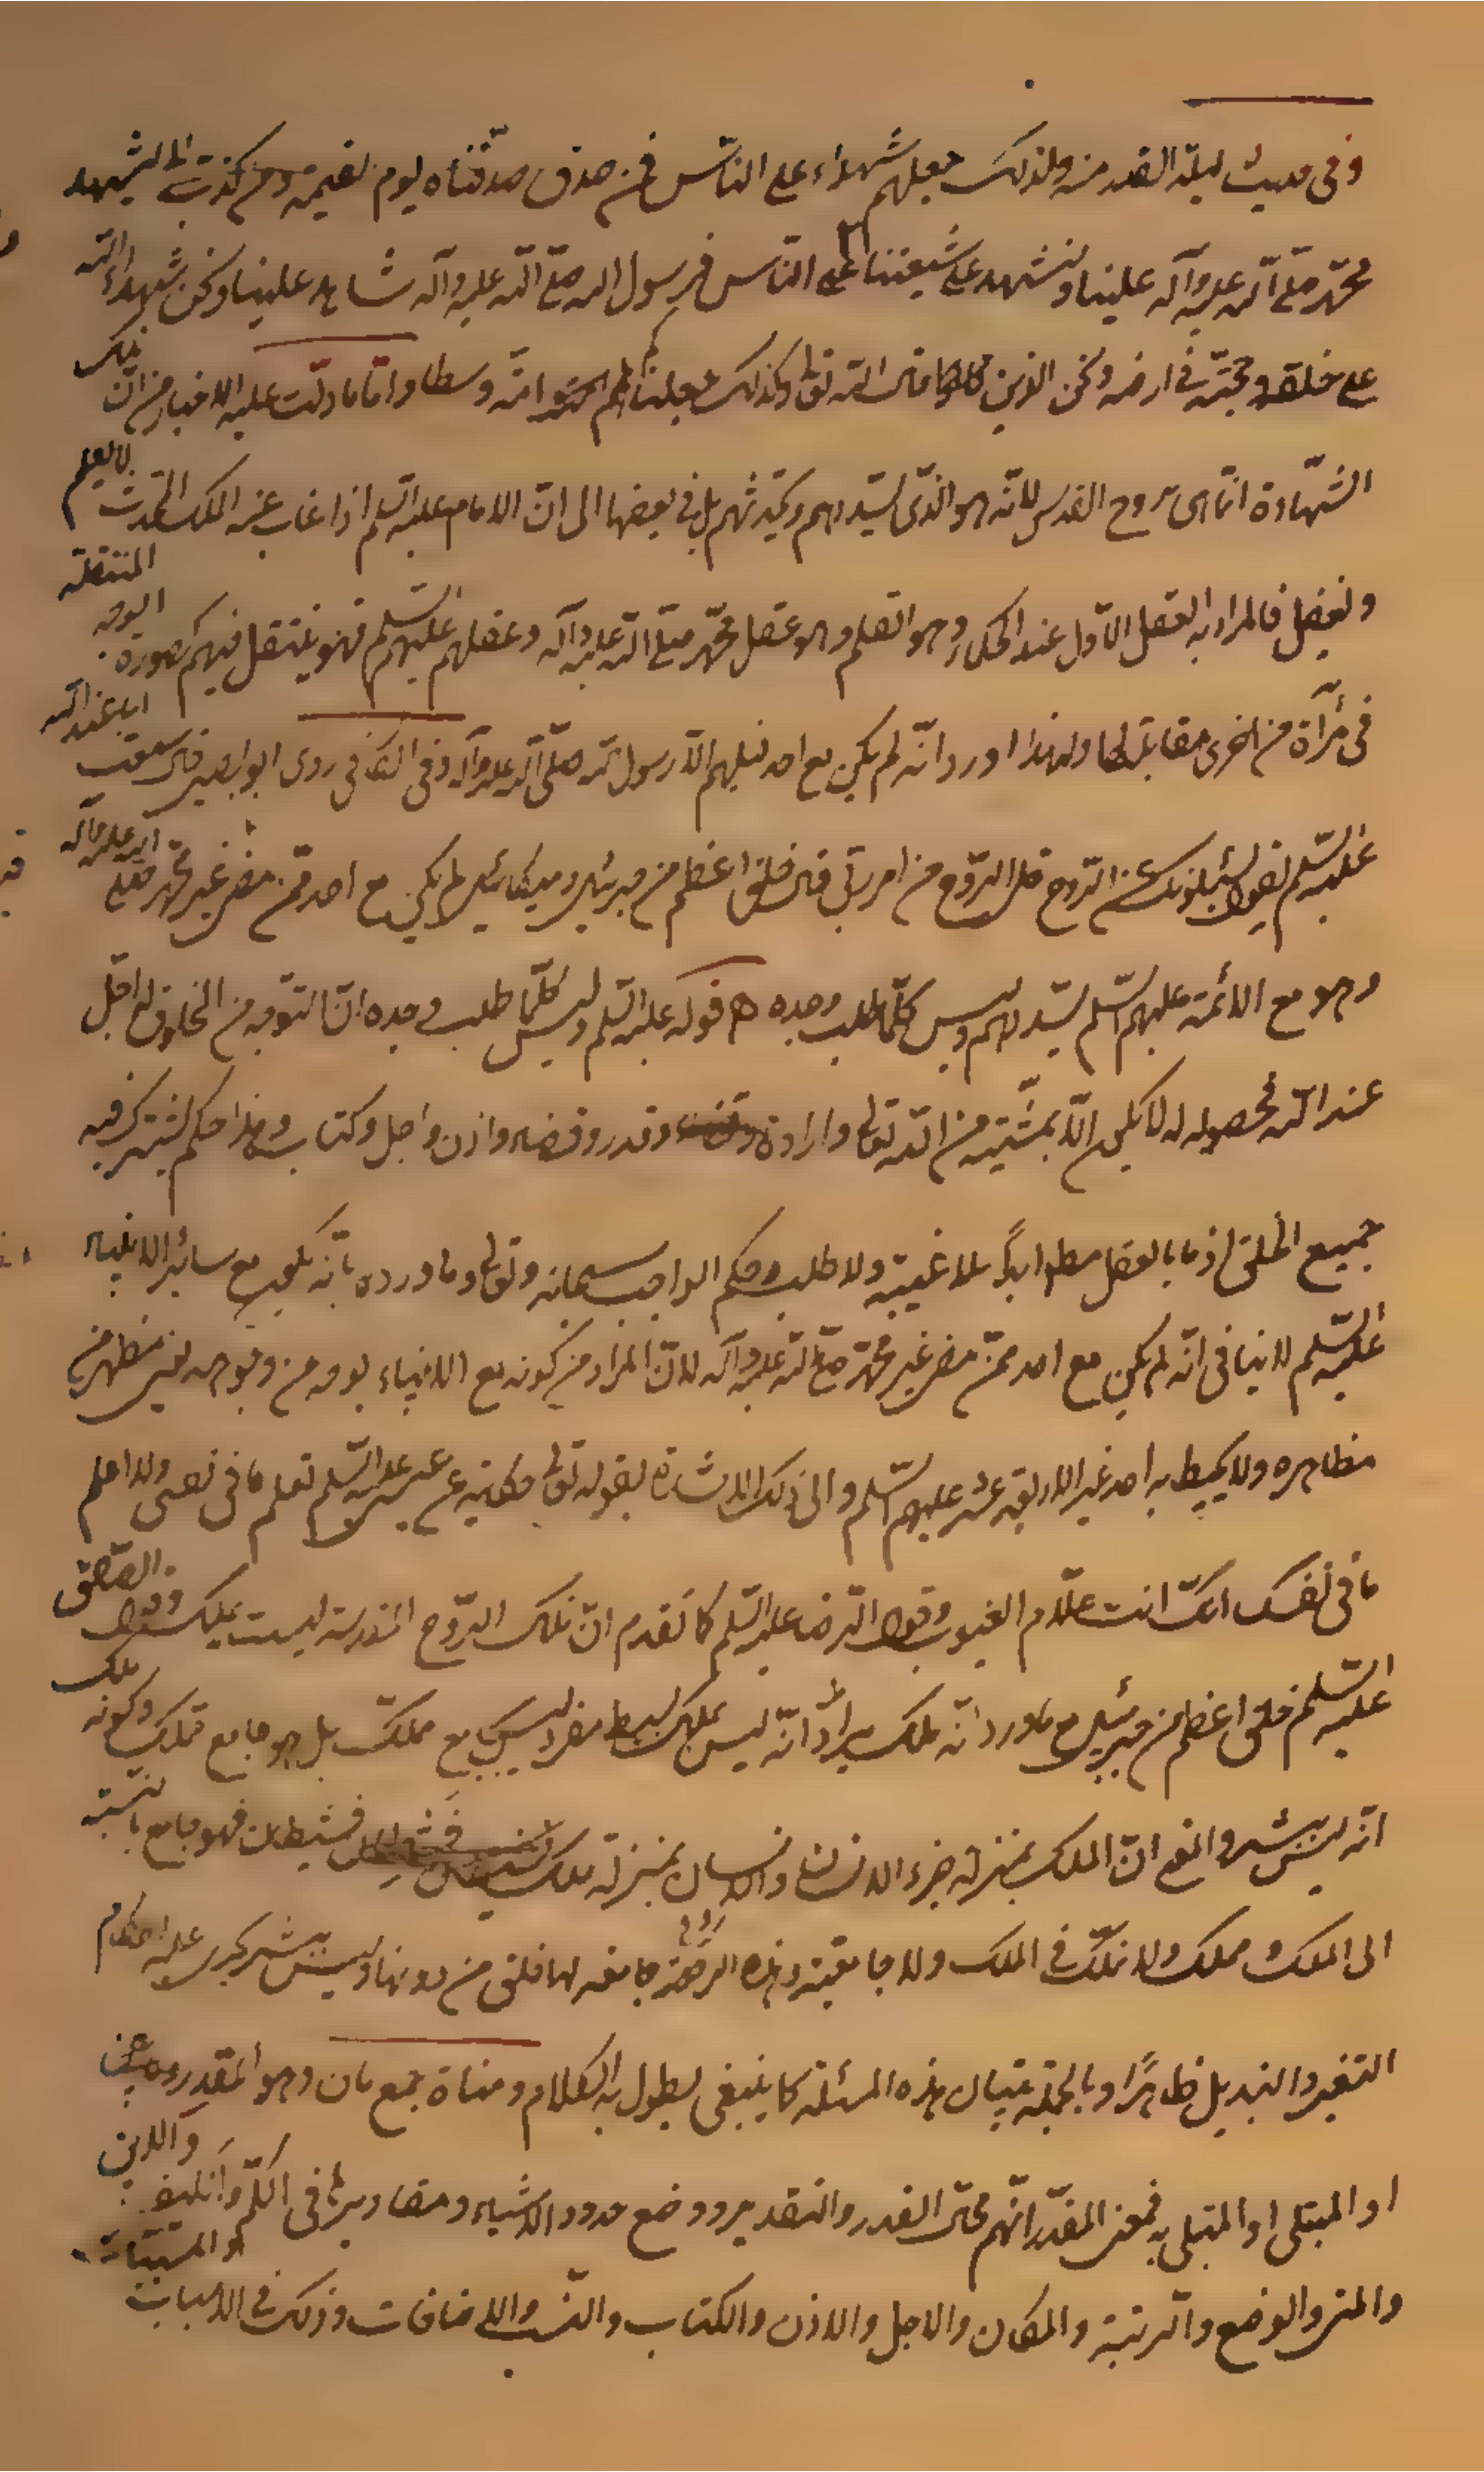 وفى حديث ليلة القدر منه ولذلك جعلهم شهداء على الناس فمن صدق صدقناه يوم القيمة ومن كذب كذبناه ليشهد
محمّد صلّى الله عليه وآله علينا ولنشهد على شيعتنا على النّاس فرسول الله صلّى الله عليه وآله شاهد علينا ونحن شهداء الله
على خلقه وحجّته فى ارضه ونحن الذين قال الله تعالى وكذلك جعلناكم امّة وسطا وامّا ما دلّت عليه الاخبار من انّ تلك
الشهادة انّما هى بروح القدس لانّه هو الذّى يسّددهم ويحدّثهم بل فى بعضها الى انّ الامام عليه السّلم اذا غاب عنه الملك المحدّث لا يعلم
ويفضل فالمراد به العقل الاوّل عند الحكماء وهو القلم وهو عقل محمّد صلّى الله عليه وآله وعقلهم عليهم السّلم فهو ينتقل فيهم كصورة الوجه المنتقلة
فى مرآة من اخرى مقابلة لها ولهذا ورد انّه لم يكن مع احد قبلهم الّا رسول الله صلّى الله عليه وآله وفى الكافى روى ابو بصير قال سمعت ابا عبد الله
عليه السّلم يقول يسئلونك عن الرّوح قل الرّوح من امر ربّى قال خلق اعظم من جبرئيل وميكائيل لم يكن مع احد ممّن مضى غير محمّد صلّى الله عليه وآله
وهو مع الائمّة عليهم السّلم يسّددهم وليس كلّما طلب وجد ه قوله عليه السّلم وليس كلّما طلب وجد انّ التوجّه من المخلوق له اجل
عند الله فحصوله له لا يكون الّا بمشيّة من الله تعالى وارادة وقدر وقضاء واذن واجل وكتاب وهذا حكم يشترك فيه
جميع الخلق اذ ما بالفعل مطلقا ابداً بلا غيبة ولا طلب حكم الواجب سبحانه وتعالى وما ورد بانّه يكون مع سائر الانبياء
عليهم السّلم لا ينافى انّه لم يكن مع احد ممّن مضى غير محمّد صلّى الله عليه وآله لانّ المراد من كونه مع الانبياء بوجه من وجوهه يعنى مظهر من
مظاهره ولا يحيط به احد غير الاربعة عشر عليهم السّلم والى ذلك الاشارة بقوله تعالى حكاية عن عيسى عليه السّلم تعلم ما فى نفسى ولا اعلم
ما فى نفسك انّك انت علّام الغيوب وقول الرّضا عليه السّلم كما تقدم انّ تلك الرّوح المقدسة ليست بملك وقول الصّادق
عليه السّلم خلق اعظم من جبرئيل مع ما ورد انّه ملك يراد انّه ليس بملك بسيط مفرد ليس مع مملكة بل هو جامع تملك وكونه ملك
انّه ليس بشر والمعنى انّ الملك بمنزلة جزء الانسان والانسان بمنزلة ملك فشيطان فهو جامع بالنّسبة
الى الملك وملك ولا تملّك فى الملك ولا جامعيّة وهذه الروح جامعة لما خلق من دونها وليس ببشر يجرى عليه احكام
التغيير والتبديل ظاهرًا وبالجملة فبيان هذه المسئلة كما ينبغى يطول به الكلام ومناة جمع مان وهو المقدّر
او المبتلى او المبتلى به فمعنى المقدّر انّهم محالّ القدر والتقدير ووضع حدود الاشياء ومقاديرها فى الكمّ والكيف والاين
والمتى والوضع والرتبة والمكان والاجل والاذن والكتاب والنّسب والاضافات وذلك فى الاسباب والمسبّبات